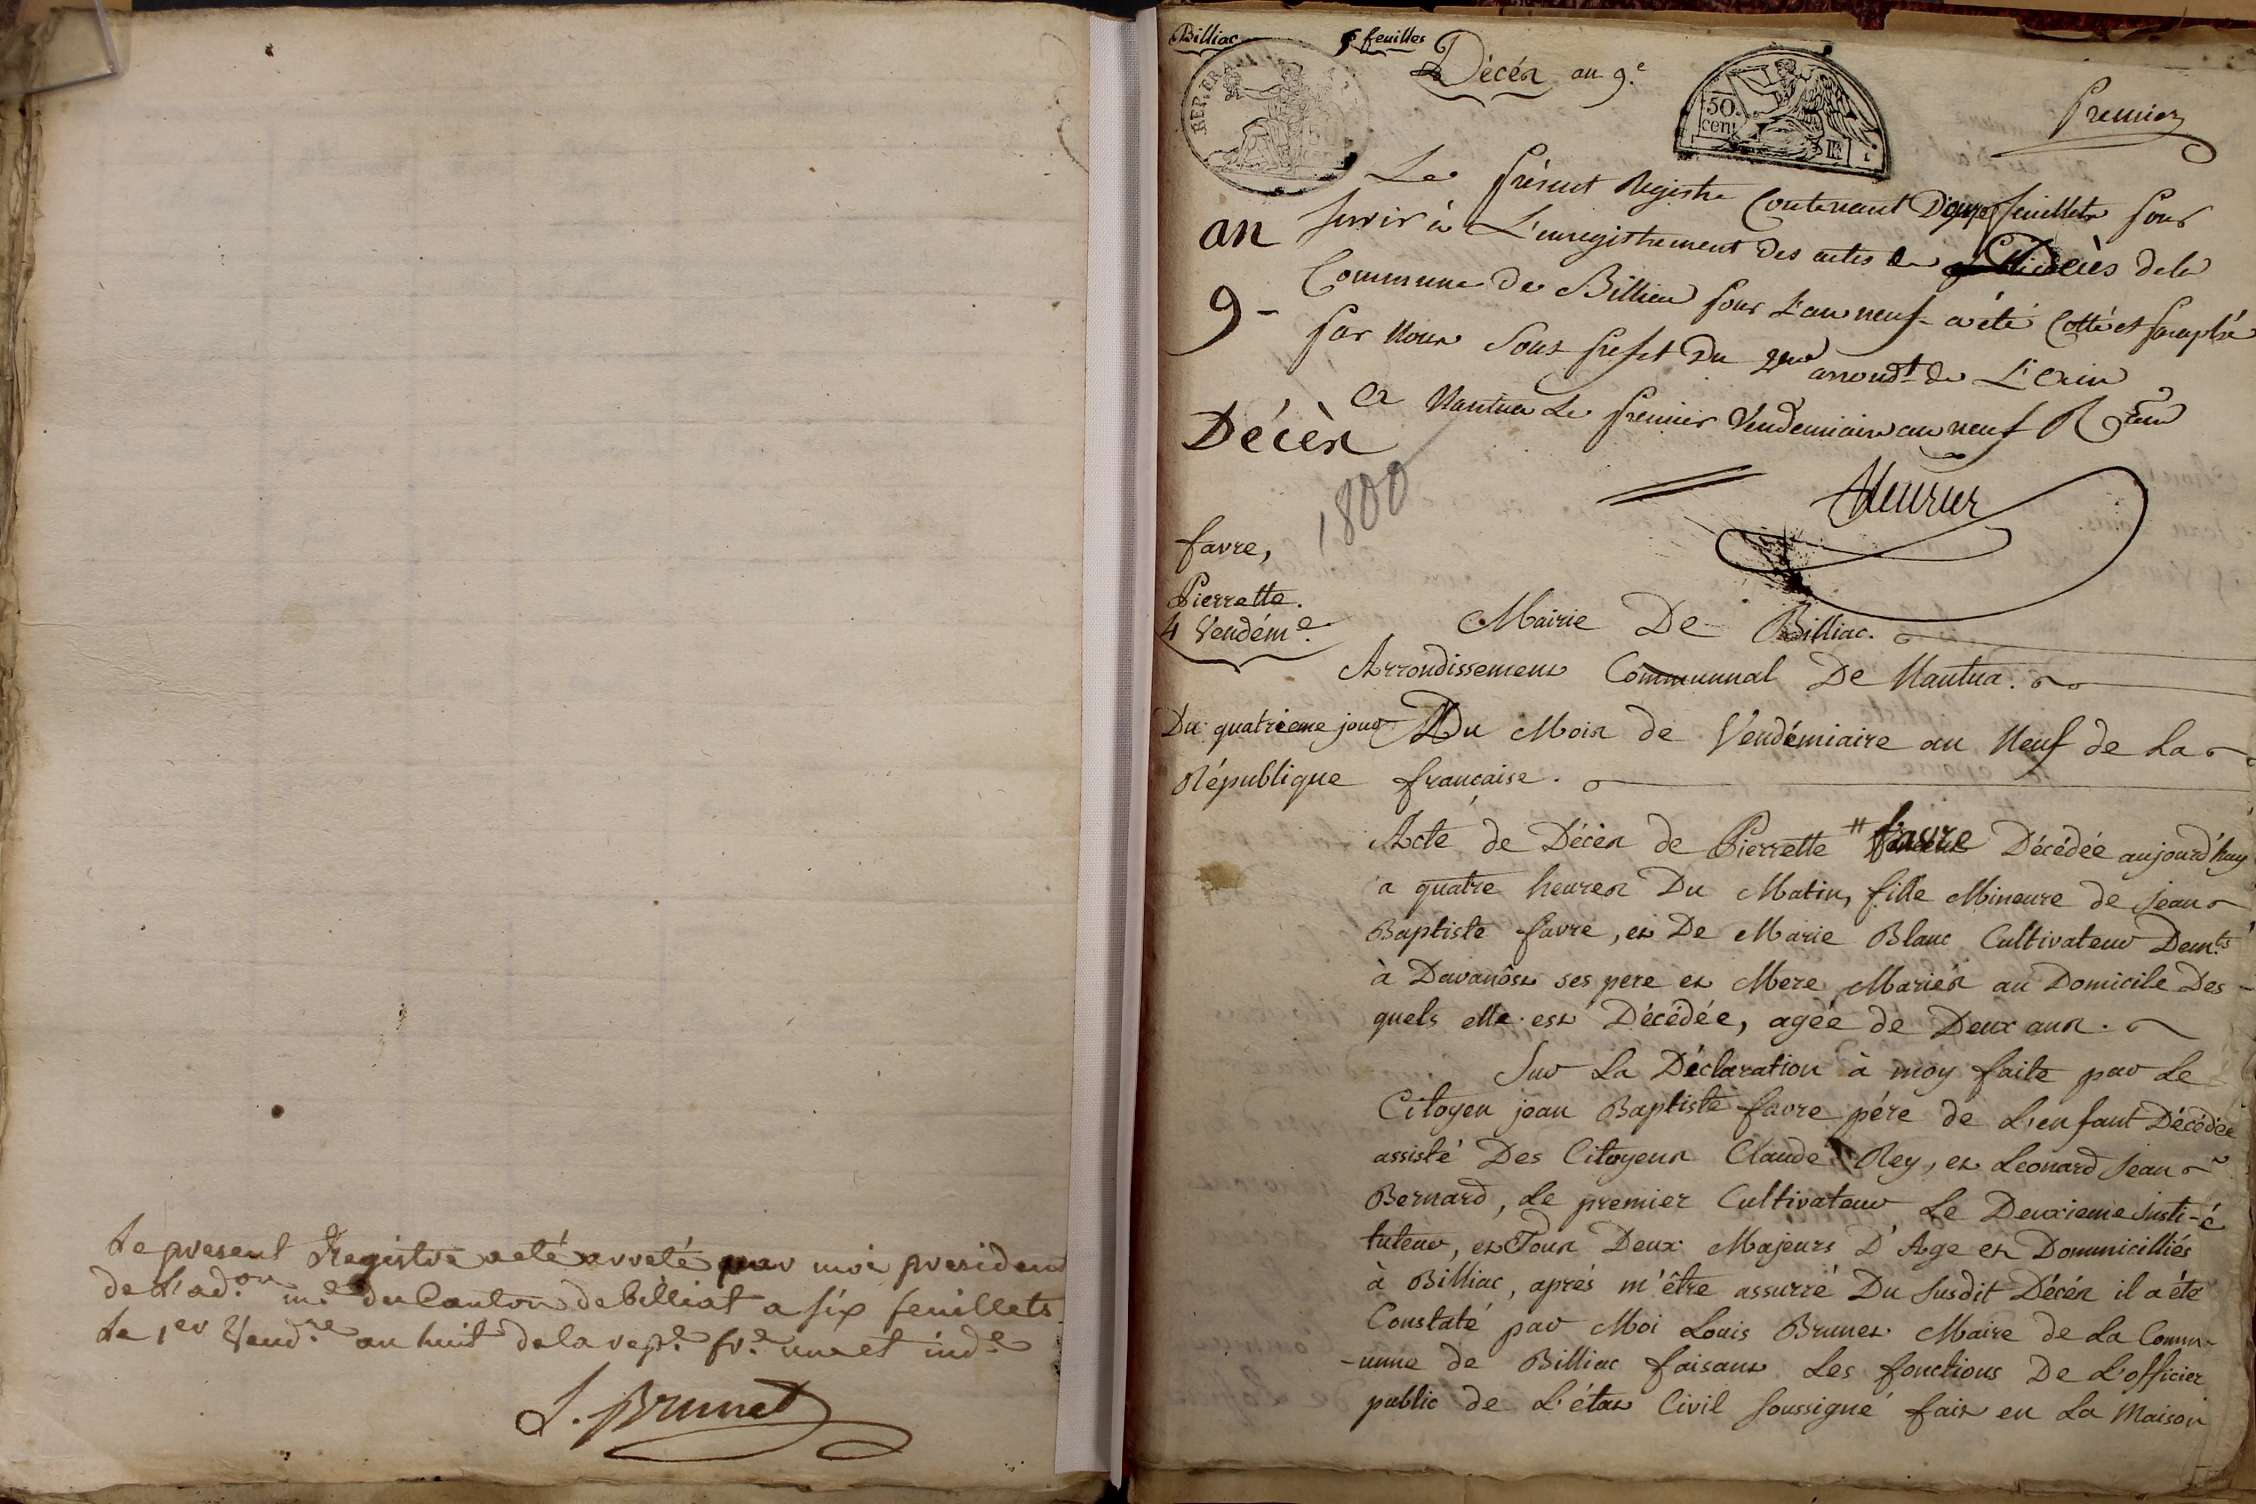 Le present Registre a eté arreté par moi president
de L'ad.on m.le du Canton de billiat a six feuillets
Le 1.er Vend.re an huit de la rep.e fr.e une et ind.e
L. Brunet
Billiac
5 feuilles
Décès an 9.e
REP. FRA.
50
cent
Premier
Le présent Registre Contenant feuillets pour
servir à L'enregistrement des actes de Décès de la
Commune de Billiac pour L'an neuf a été Cotté et paraphé
par Nous Sous prefet Du 2me arrondt de L'Ain
a Nantua Le premier Vendemiaire an neuf
an
9-
Décès
1800
favre,
Pierrette.
4 Vendém.e
Mairie De Billiac.
Arrondissement Communnal De Nantua.
Du quatrieme jour Du Mois de Vendémiaire an Neuf de La
République française.
Acte de Décès de Pierrette # favre Décédée aujourd'huy
a quatre heures Du Matin, fille Mineure de jean
Baptiste favre, et De Marie Blanc Cultivateur Dem.ts
à Davanôst ses pere et Mere Mariés au Domicile Des-
quels elle est Décédée, agée de Deux ans.
Sur La Déclaration à moy faite par Le
Citoyen jean Baptiste favre pére de L'enfant Décédée
assisté Des Citoyens Claude Rey, et Leonard jean
Bernard, Le premier Cultivateur Le Deuxieme insti-
tuteur, et Tous Deux Majeurs D'Age et Dommicilliés
à Billiac, aprés m'être assurré Du susdit Décés il a été
Constaté par Moi Louis Brunet Maire de La Comm-
-unne de Billiac faisant Les fonctions De L'officier
public de L'état Civil soussigné fait en La Maison